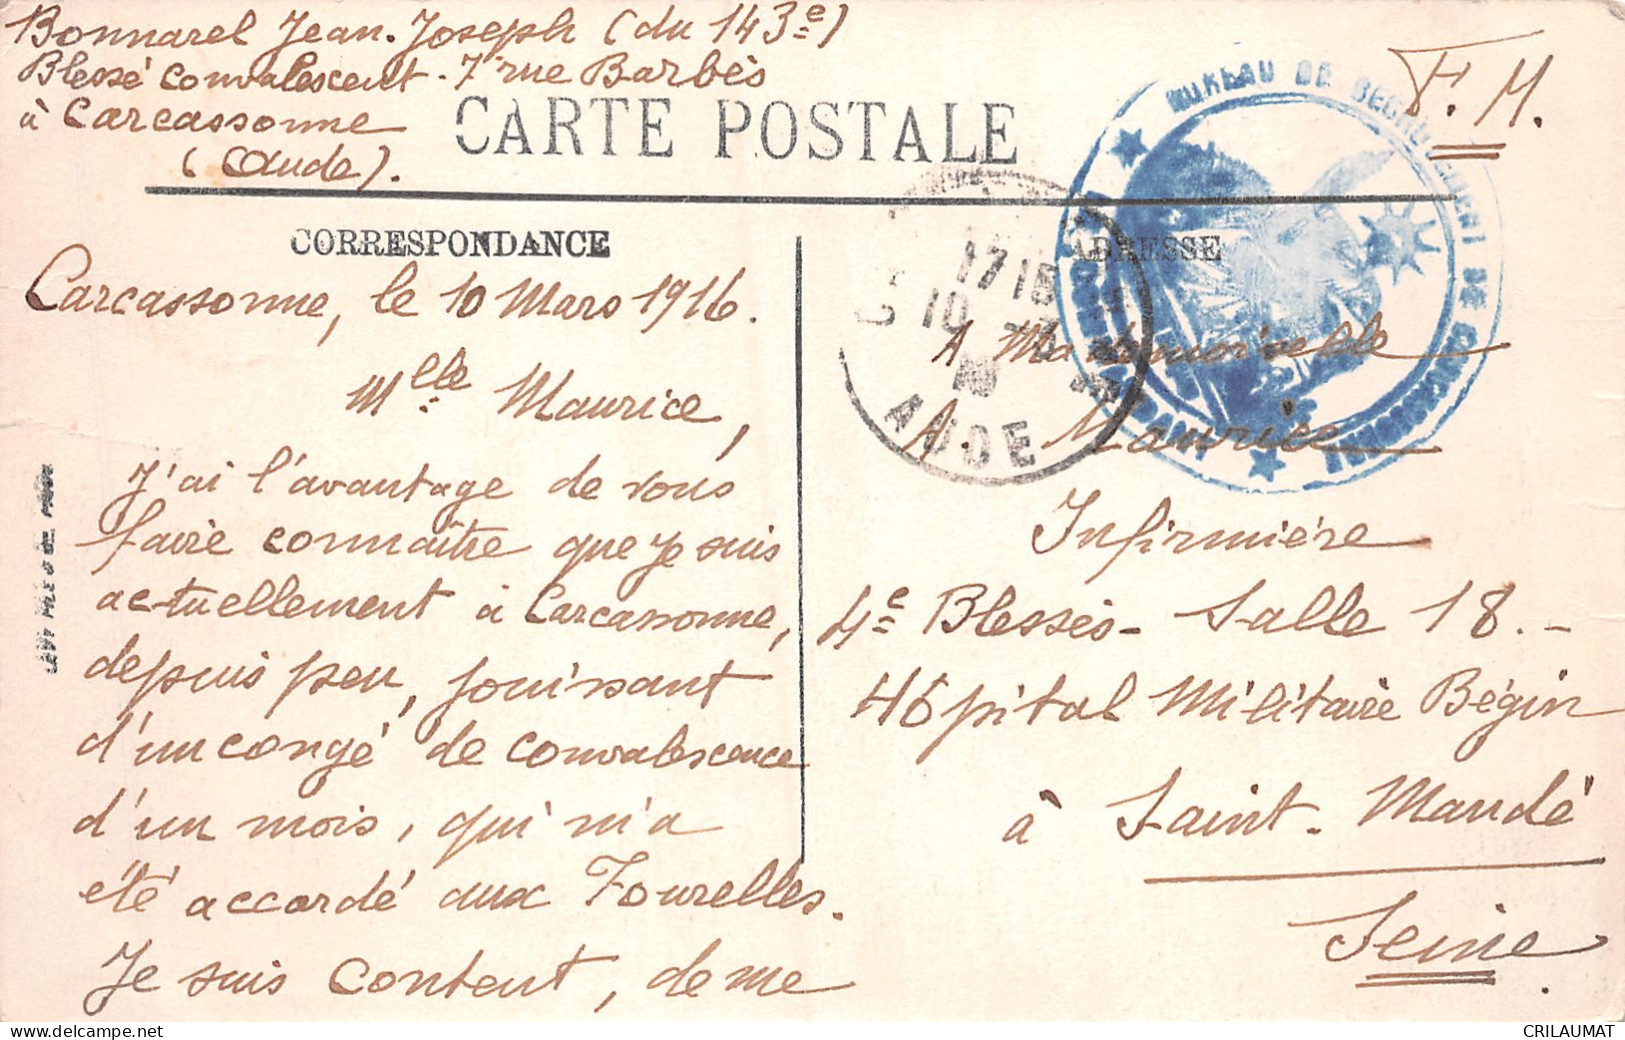 Bonnarel Jean-Joseph (du 143e)
Blessé convalescent - 7 rue Barbès
à Carcassonne
(Aude).
F.M.
CARTE POSTALE
CORRESPONDANCE
ADRESSE
BUREAU DE RECRUTEMENT DE CARCASSONNE
1715
10 -3
16
AUDE
Carcassonne, le 10 Mars 1916.
Mlle Maurice,
J'ai l'avantage de vous
faire connaître que je suis
actuellement à Carcassonne,
depuis peu, jouissant
d'un congé de convalescence
d'un mois, qui m'a
été accordé aux Tourelles.
Je suis content, de me
A Mademoiselle
A. Maurice
Infirmière
4e Blessés - Salle 18. -
Hôpital Militaire Bégin
à Saint-Mandé
Seine.
CRILAUMAT